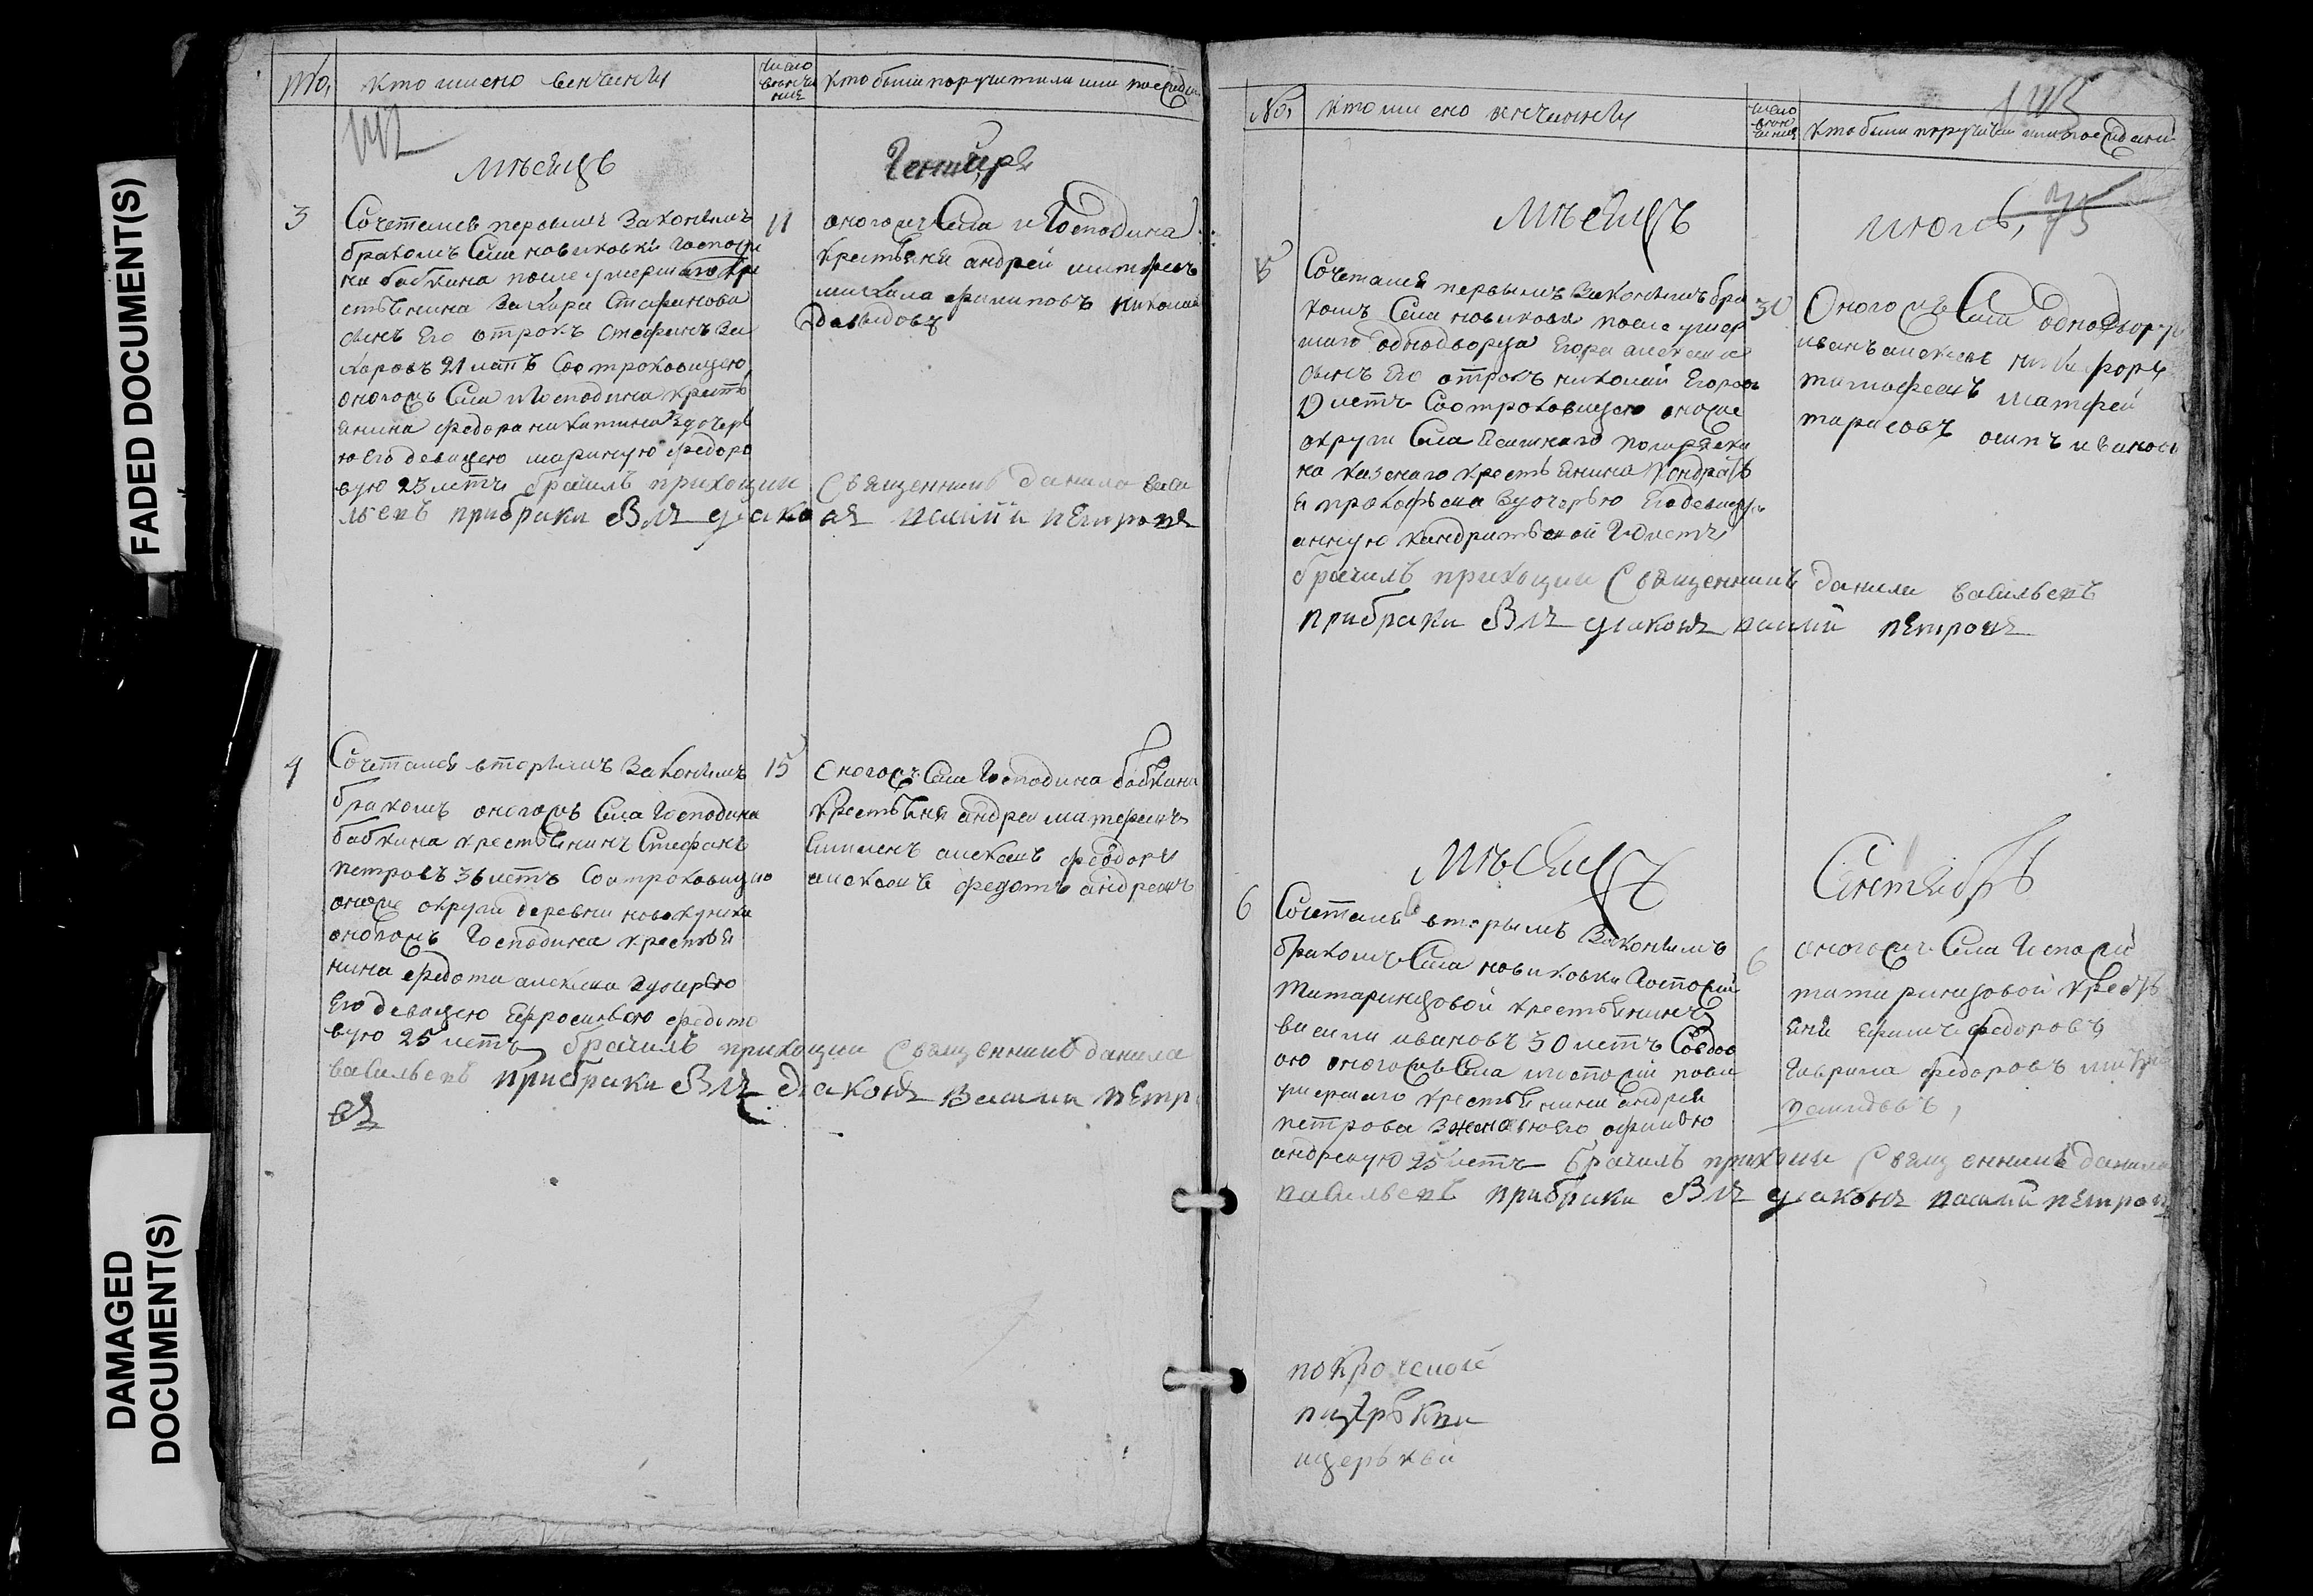 FADED DOCUMENT(S)
DAMAGED
DOCUMENT(S)
кто имено венчаны
число
венча
ния
кто были поручители или
мѣсяцъ
Генварь
3
Сочетался первымъ законымъ
бракомъ Села новиковки Господи
на бабкина после умершаго кре
стьянина Захара Стефанова
сынъ Его отрокъ стефанъ За
харовъ 21 летъ Соотроковицею
оногожъ Села и Господина кресть
янина федора никитина здочерь
ю Его девицею мариную федоро
вую 23 летъ браилъ приходции Священникъ данила васи
льевъ при браки былъ диаконъ василии петровъ
11
оногожъ Села и Господина
крестьяня андрей матфеевъ
михаила филиповъ николаи
давыдовъ
4
Сочетался вторымъ законымъ
бракомъ оногожъ Села Господина
бабкина крестьянинъ Стефанъ
петровъ 36 летъ Соотроковицею
оноже округи деревни
оногожъ Господина крестья
нина федота алексеева здочерью
Его девицею Ефросиньею федото
вую 25 летъ браилъ приходции Священникъ данила
васильевъ при браки былъ диаконъ Василии петро
въ
15
оногожъ Села Господина бабкина
крестьяня андреи матфеевъ
алексеевъ федоръ
алексеевъ федотъ андреевъ
No
кто имено венчанны
число
венч
ания
кто были
мѣсяцъ
июль
75
5
Сочетался первымъ законымъ бра
комъ Села новиковки после умер
шаго однодворца Егора алексеева
сынъ Его отрокъ николай Егоровъ
19 летъ Соотроковицею оноже
округи Села
на казенаго крестьянина кондрать
я прокофьева здочерью Его девицею
анную кандратьевой 19 летъ
браилъ приходции Священникъ данила васильевъ
при браки былъ диаконъ василии петровъ
30
Оногожъ Села однодворцы
иванъ алексеевъ никифоръ
тимофеевъ матфей
тарасовъ осипъ ивановъ
мѣсяцъ
Сентябрь
6
Сочетался вторымъ законымъ
бракомъ Села новиковки Госпожи
татариновой крестьянинъ
василии ивановъ 30 летъ Совдов
ою оногожъ Села и госпожи после
умершаго крестьянина андрея
петрова зженою Его
андревую 25 летъ браилъ приходции Священникъ данила
васильевъ при браки былъ диаконъ василии петровъ
6
оногожъ Села Госпожи
татариновой кресть
яня Ефимъ федоровъ
Гаврила федоровъ